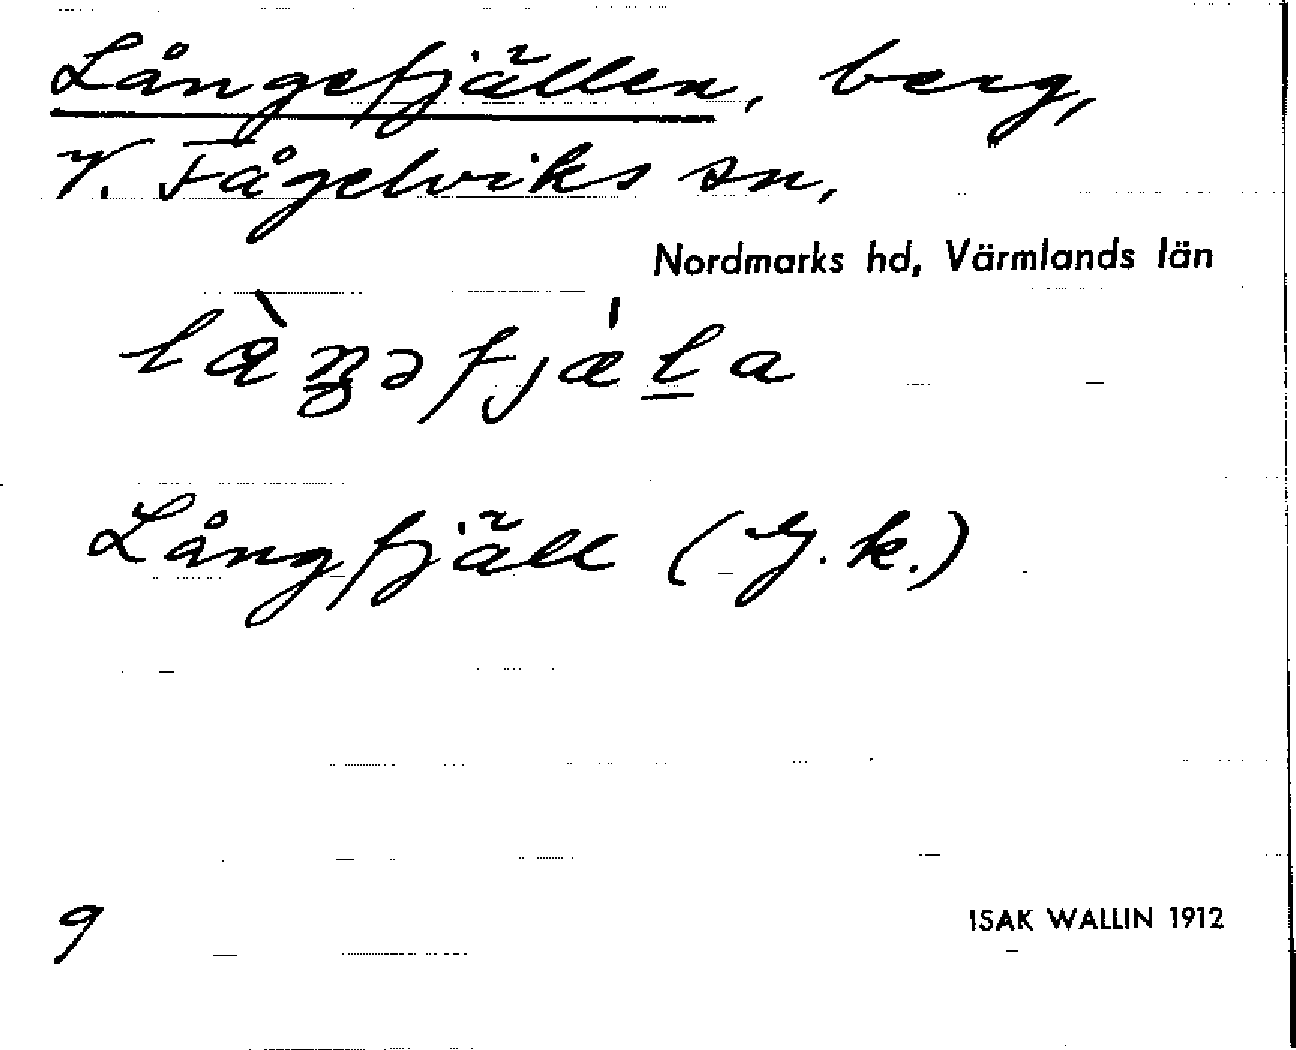 Långefjällen, berg,
V. Fågelviks sn,
Nordmarks hd, Värmlands län
Långfjäll (G. k.)
9
ISAK WALLIN 1912